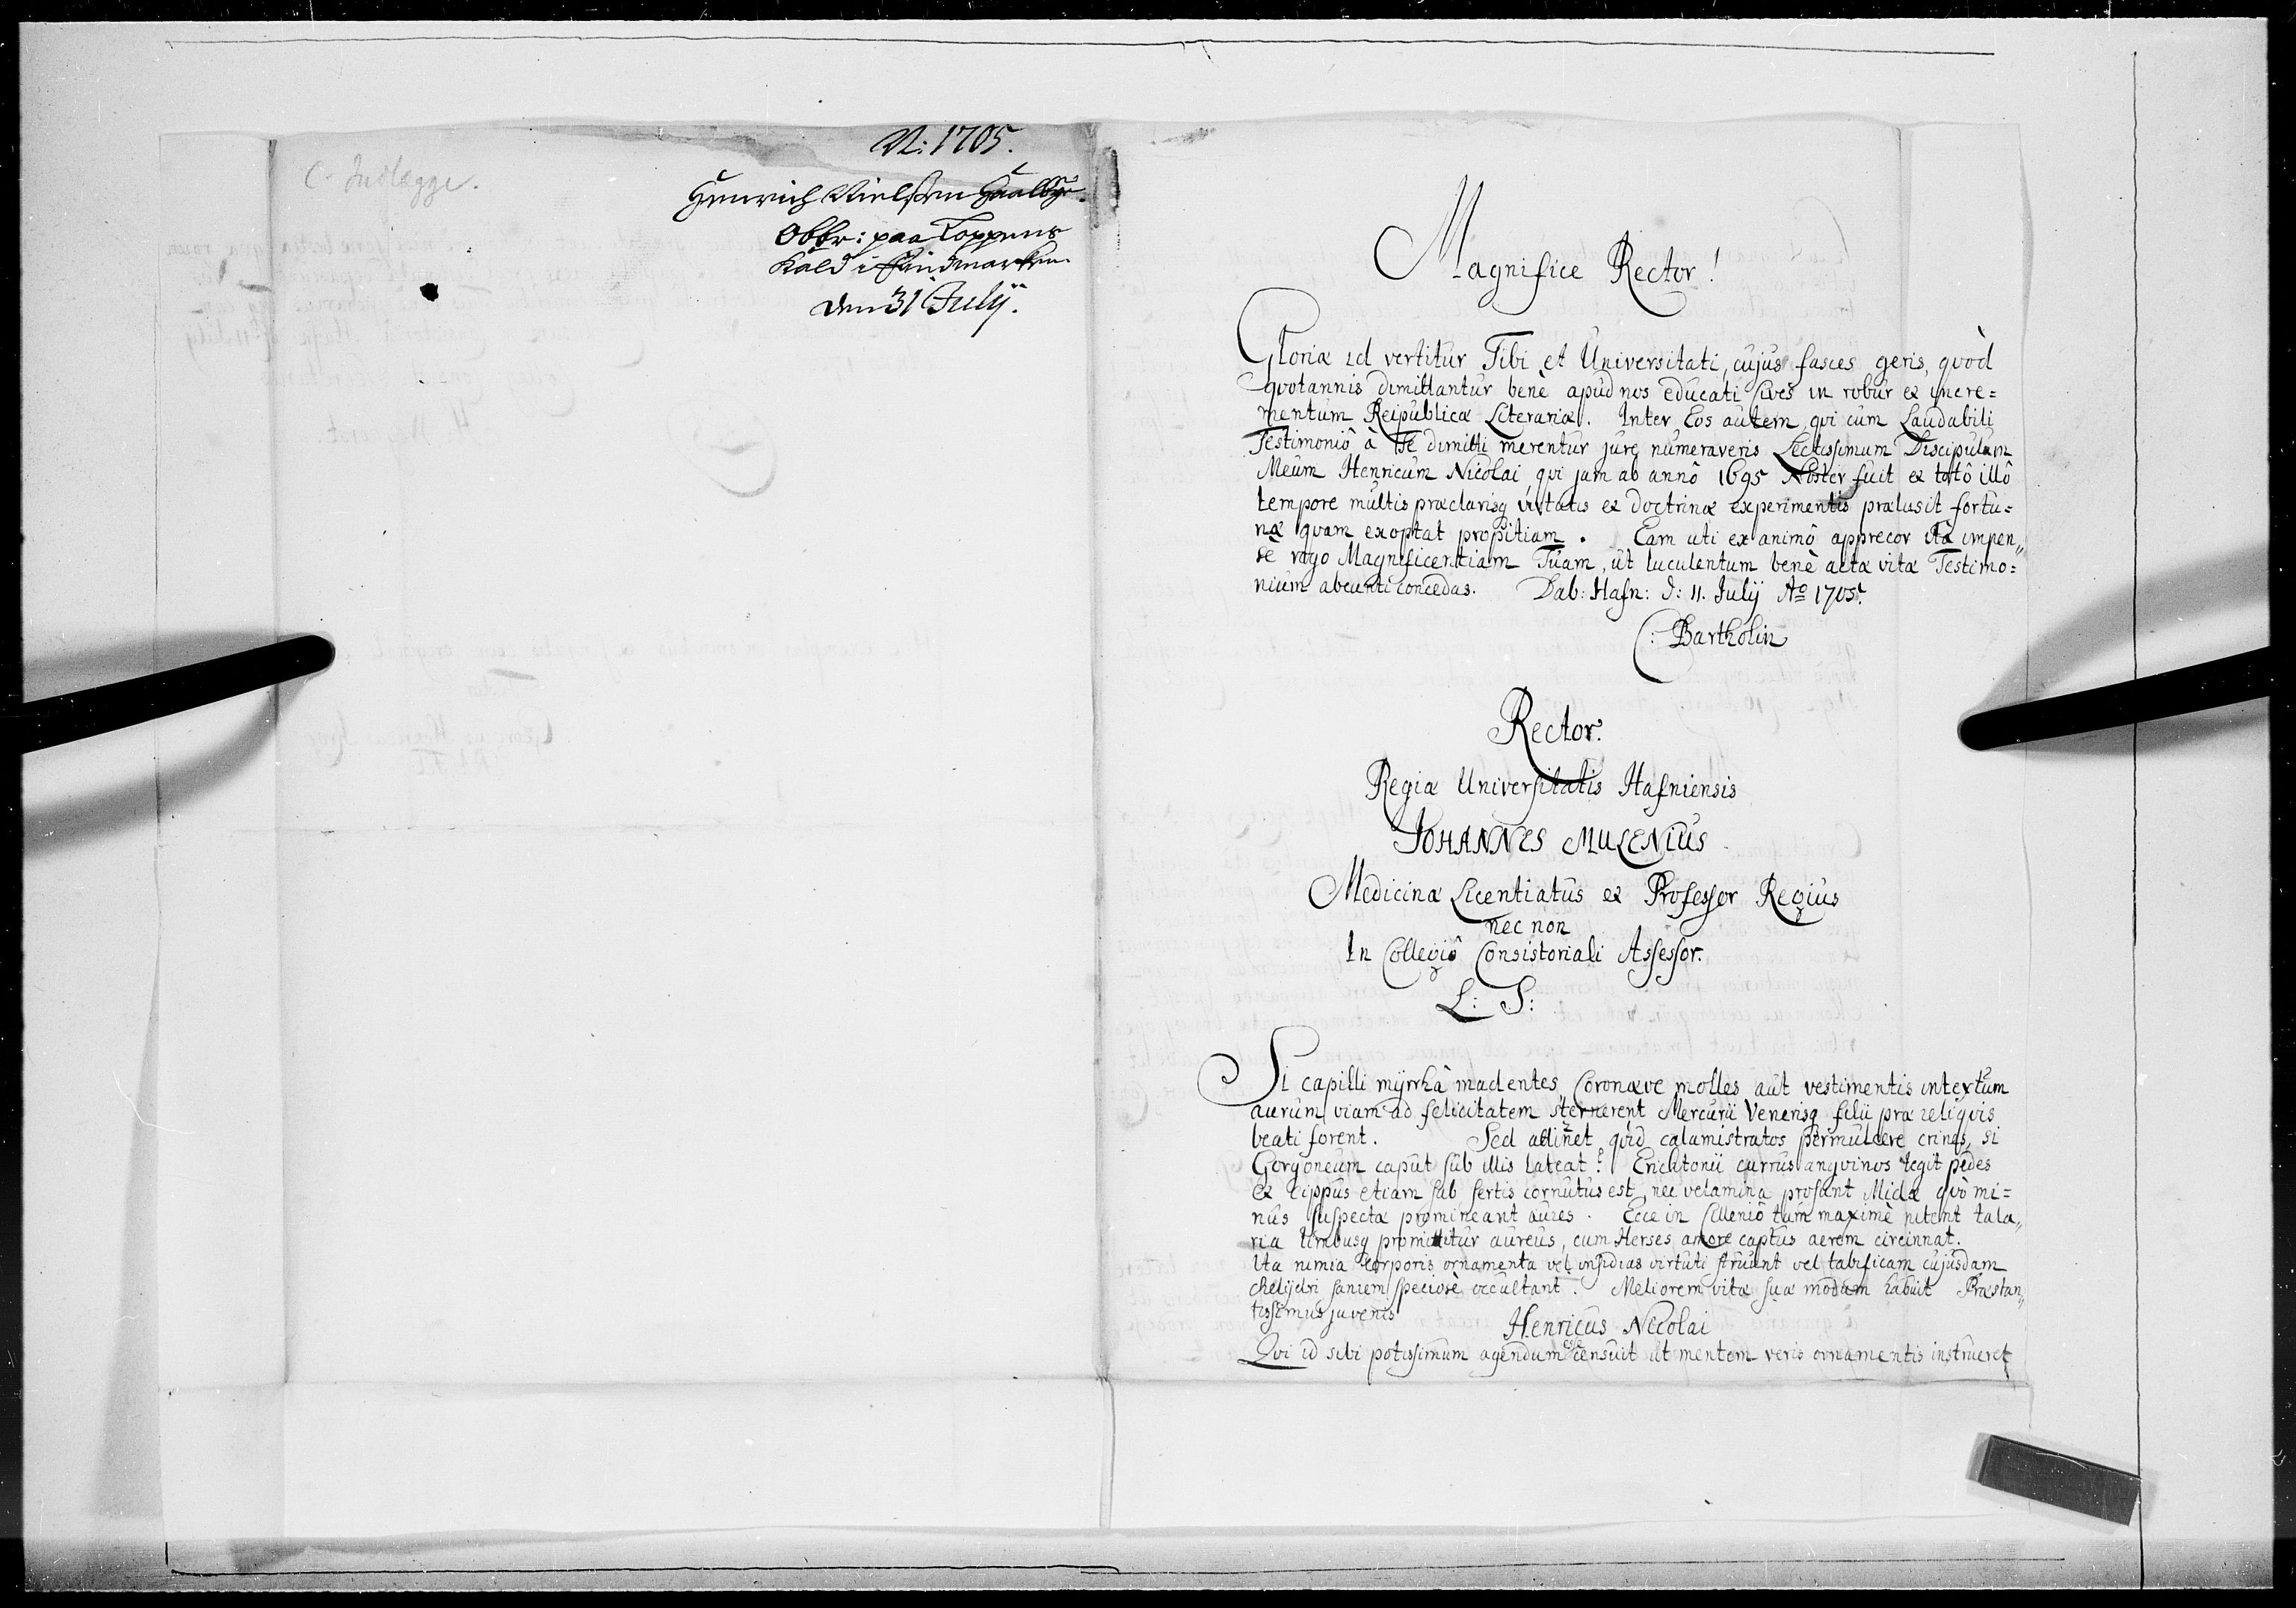 C. Indlægge.
N: 1705.
Henrich Nielssen
Obbr: paa Loppens
Kald i Findmarken
den 31 Julij.
Magnifice Rector!
Gloriæ id vertitur Tibi et Universitati, cujus fasces geris, qvòd
qvotannis dimittantur benè apud nos educati Cives in robur et incre=
mentum Reipublicæ Literariæ. Inter Eos autem, qvi cum Laudabili
Testimoniô à Te dimitti merentur jure numeraveris Lectissimum Discipulum
Meum Henricum Nicolai, qvi jam ab annô 1695 Noster fuit et totô illô
tempore multis præclarisq virtutis et doctrinæ experimentis prælusit fortu=
næ qvam exoptat propitiam. Eam uti ex animô apprecor ita impen„
sè rogo Magnificentiam Tuam, ut luculentum benè actæ vitæ Testimo=
nium abeunti concedas. Dab: Hafn: d: 11. Julij Ao 1705.
C: Bartholin
Rector
Regiæ Universitatis Hafniensis
JOHANNES MULENIUS
Medicinæ Licentiatus et Professor Regius
nec non
In Collegiô Consistoriali Assessor.
L: S:
Si capilli mÿrrhâ madentes Coronæve molles aut vestimentis intextum
aurum viam ad felicitatem sternerent Mercurii Venerisq filii præ reliqvis
beati forent. Sed attinet qvid calamistratos permulcere crines, si
Gorgoneum caput sub illis lateat? Erichtonii currus angvinos tegit pedes
et Cippus etiam sub sertis cornutus est, nec velamina prosunt Midæ qvò mi=
nus suspectæ promineant aures. Ecce in Cilleniô tum maximè nitent tala„
ria limbusq promittitur aureus, cum Herses amore captus aerem circinnat.
Ita nimia corporis ornamenta vel insidias virtuti struunt vel tabificam cujusdam
chelydri saniem speciosè occultant. Meliorem vitæ suæ modum habuit Præstan„
tissimus juvenis
Henricus Nicolai
Qvi id sibi potissimum agendum esse censuit ut mentem veris ornamentis instrueret